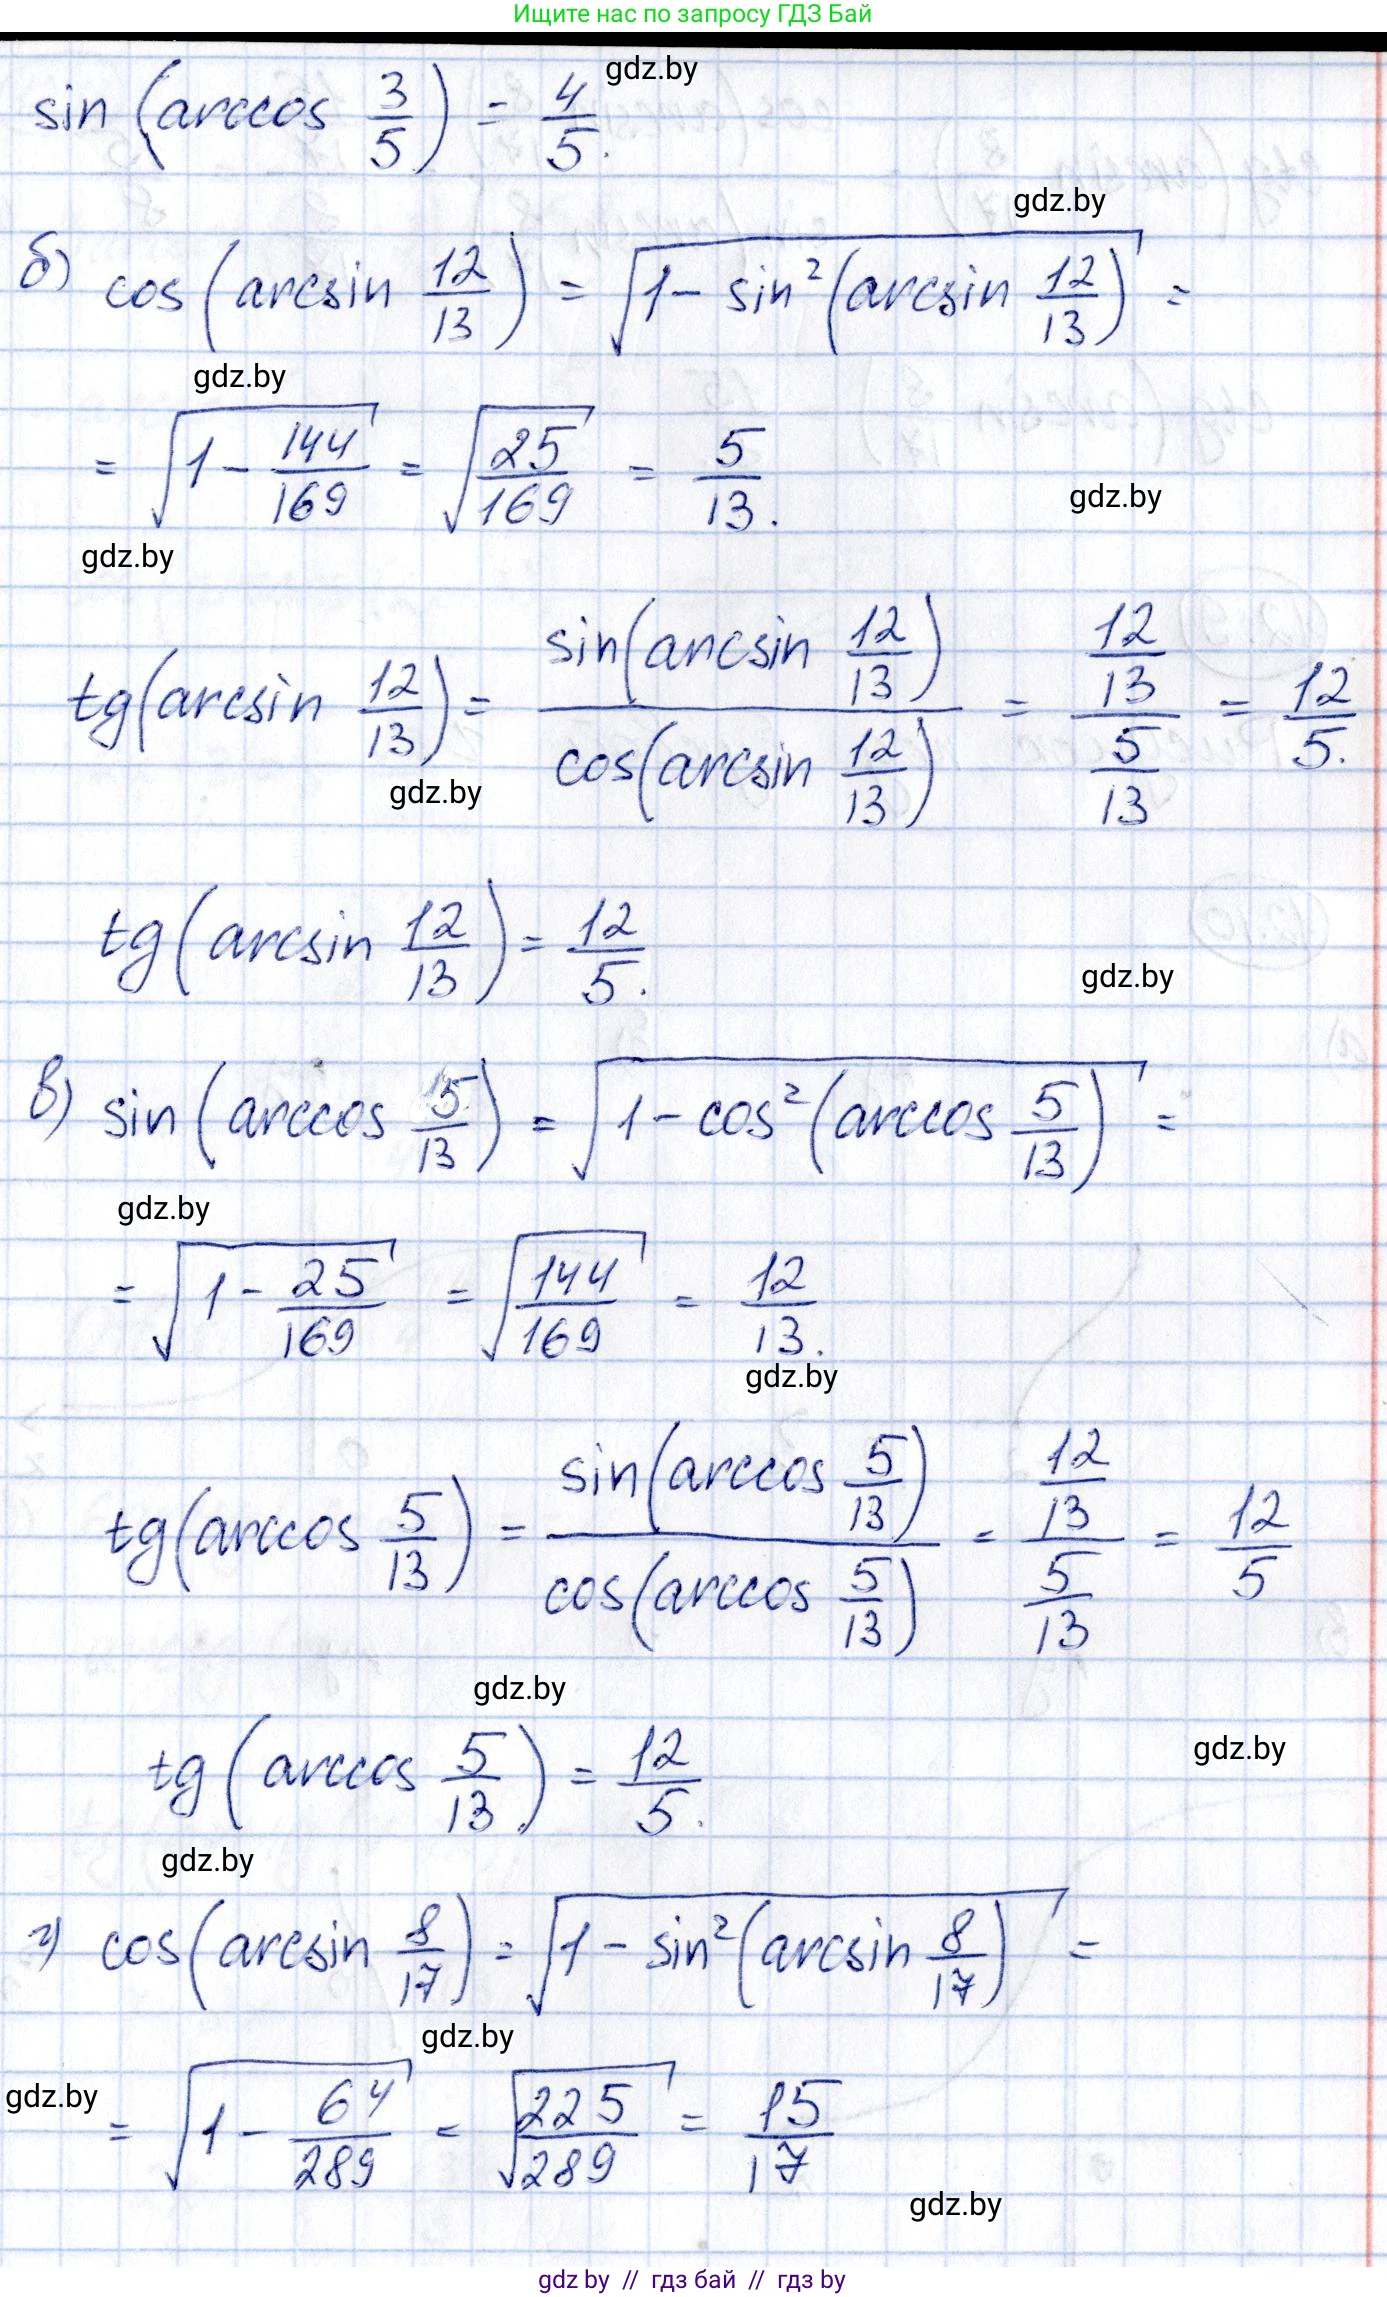 Ищите нас по запросу ГДЗ Бай
gdz.by
sin (arccos 3/5) = 4/5.
gdz.by
б) cos (arcsin 12/13) = √(1 - sin² (arcsin 12/13)) =
gdz.by
= √(1 - 144/169) = √(25/169) = 5/13.
gdz.by
gdz.by
tg(arcsin 12/13) = sin(arcsin 12/13) / cos(arcsin 12/13) = (12/13) / (5/13) = 12/5.
gdz.by
tg (arcsin 12/13) = 12/5.
gdz.by
в) sin (arccos 5/13) = √(1 - cos² (arccos 5/13)) =
gdz.by
= √(1 - 25/169) = √(144/169) = 12/13.
gdz.by
tg(arccos 5/13) = sin(arccos 5/13) / cos(arccos 5/13) = (12/13) / (5/13) = 12/5
gdz.by
gdz.by
tg (arccos 5/13) = 12/5.
gdz.by
г) cos(arcsin 8/17) = √(1 - sin² (arcsin 8/17)) =
gdz.by
gdz.by
= √(1 - 64/289) = √(225/289) = 15/17
gdz.by
gdz by // гдз бай // гдз by